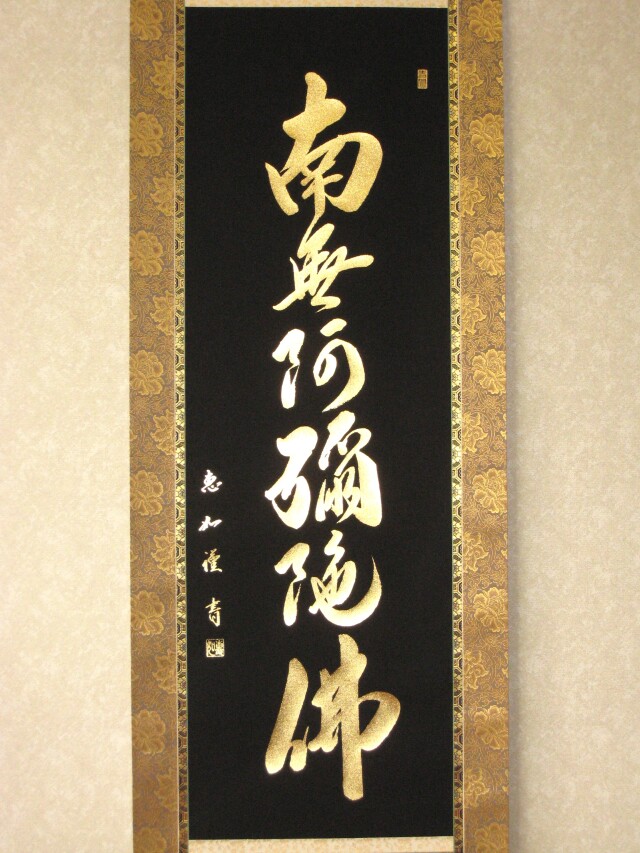 南無阿彌陀佛
惠如謹書